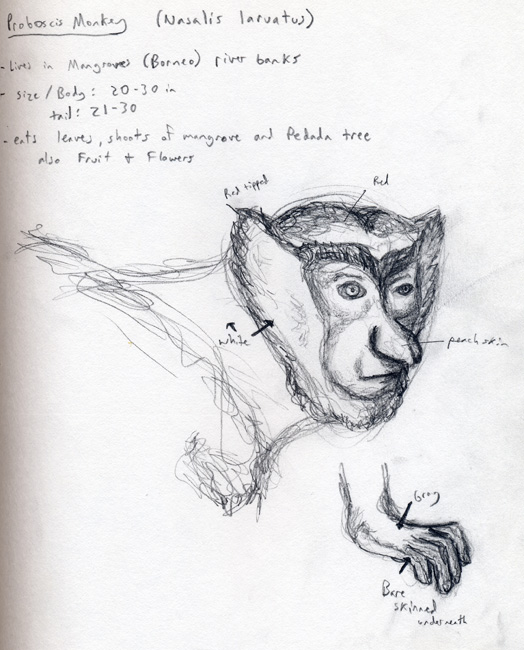 Proboscis Monkey (Nasalis larvatus)
- Lives in Mangroves (Borneo) river banks
- size/Body: 20-30 in
tail: 21-30
- eats leaves, shoots of mangrove and Pedada tree
also Fruit + Flowers
Red tipped
Red
white
peach skin
Grey
Bare
skinned
underneath